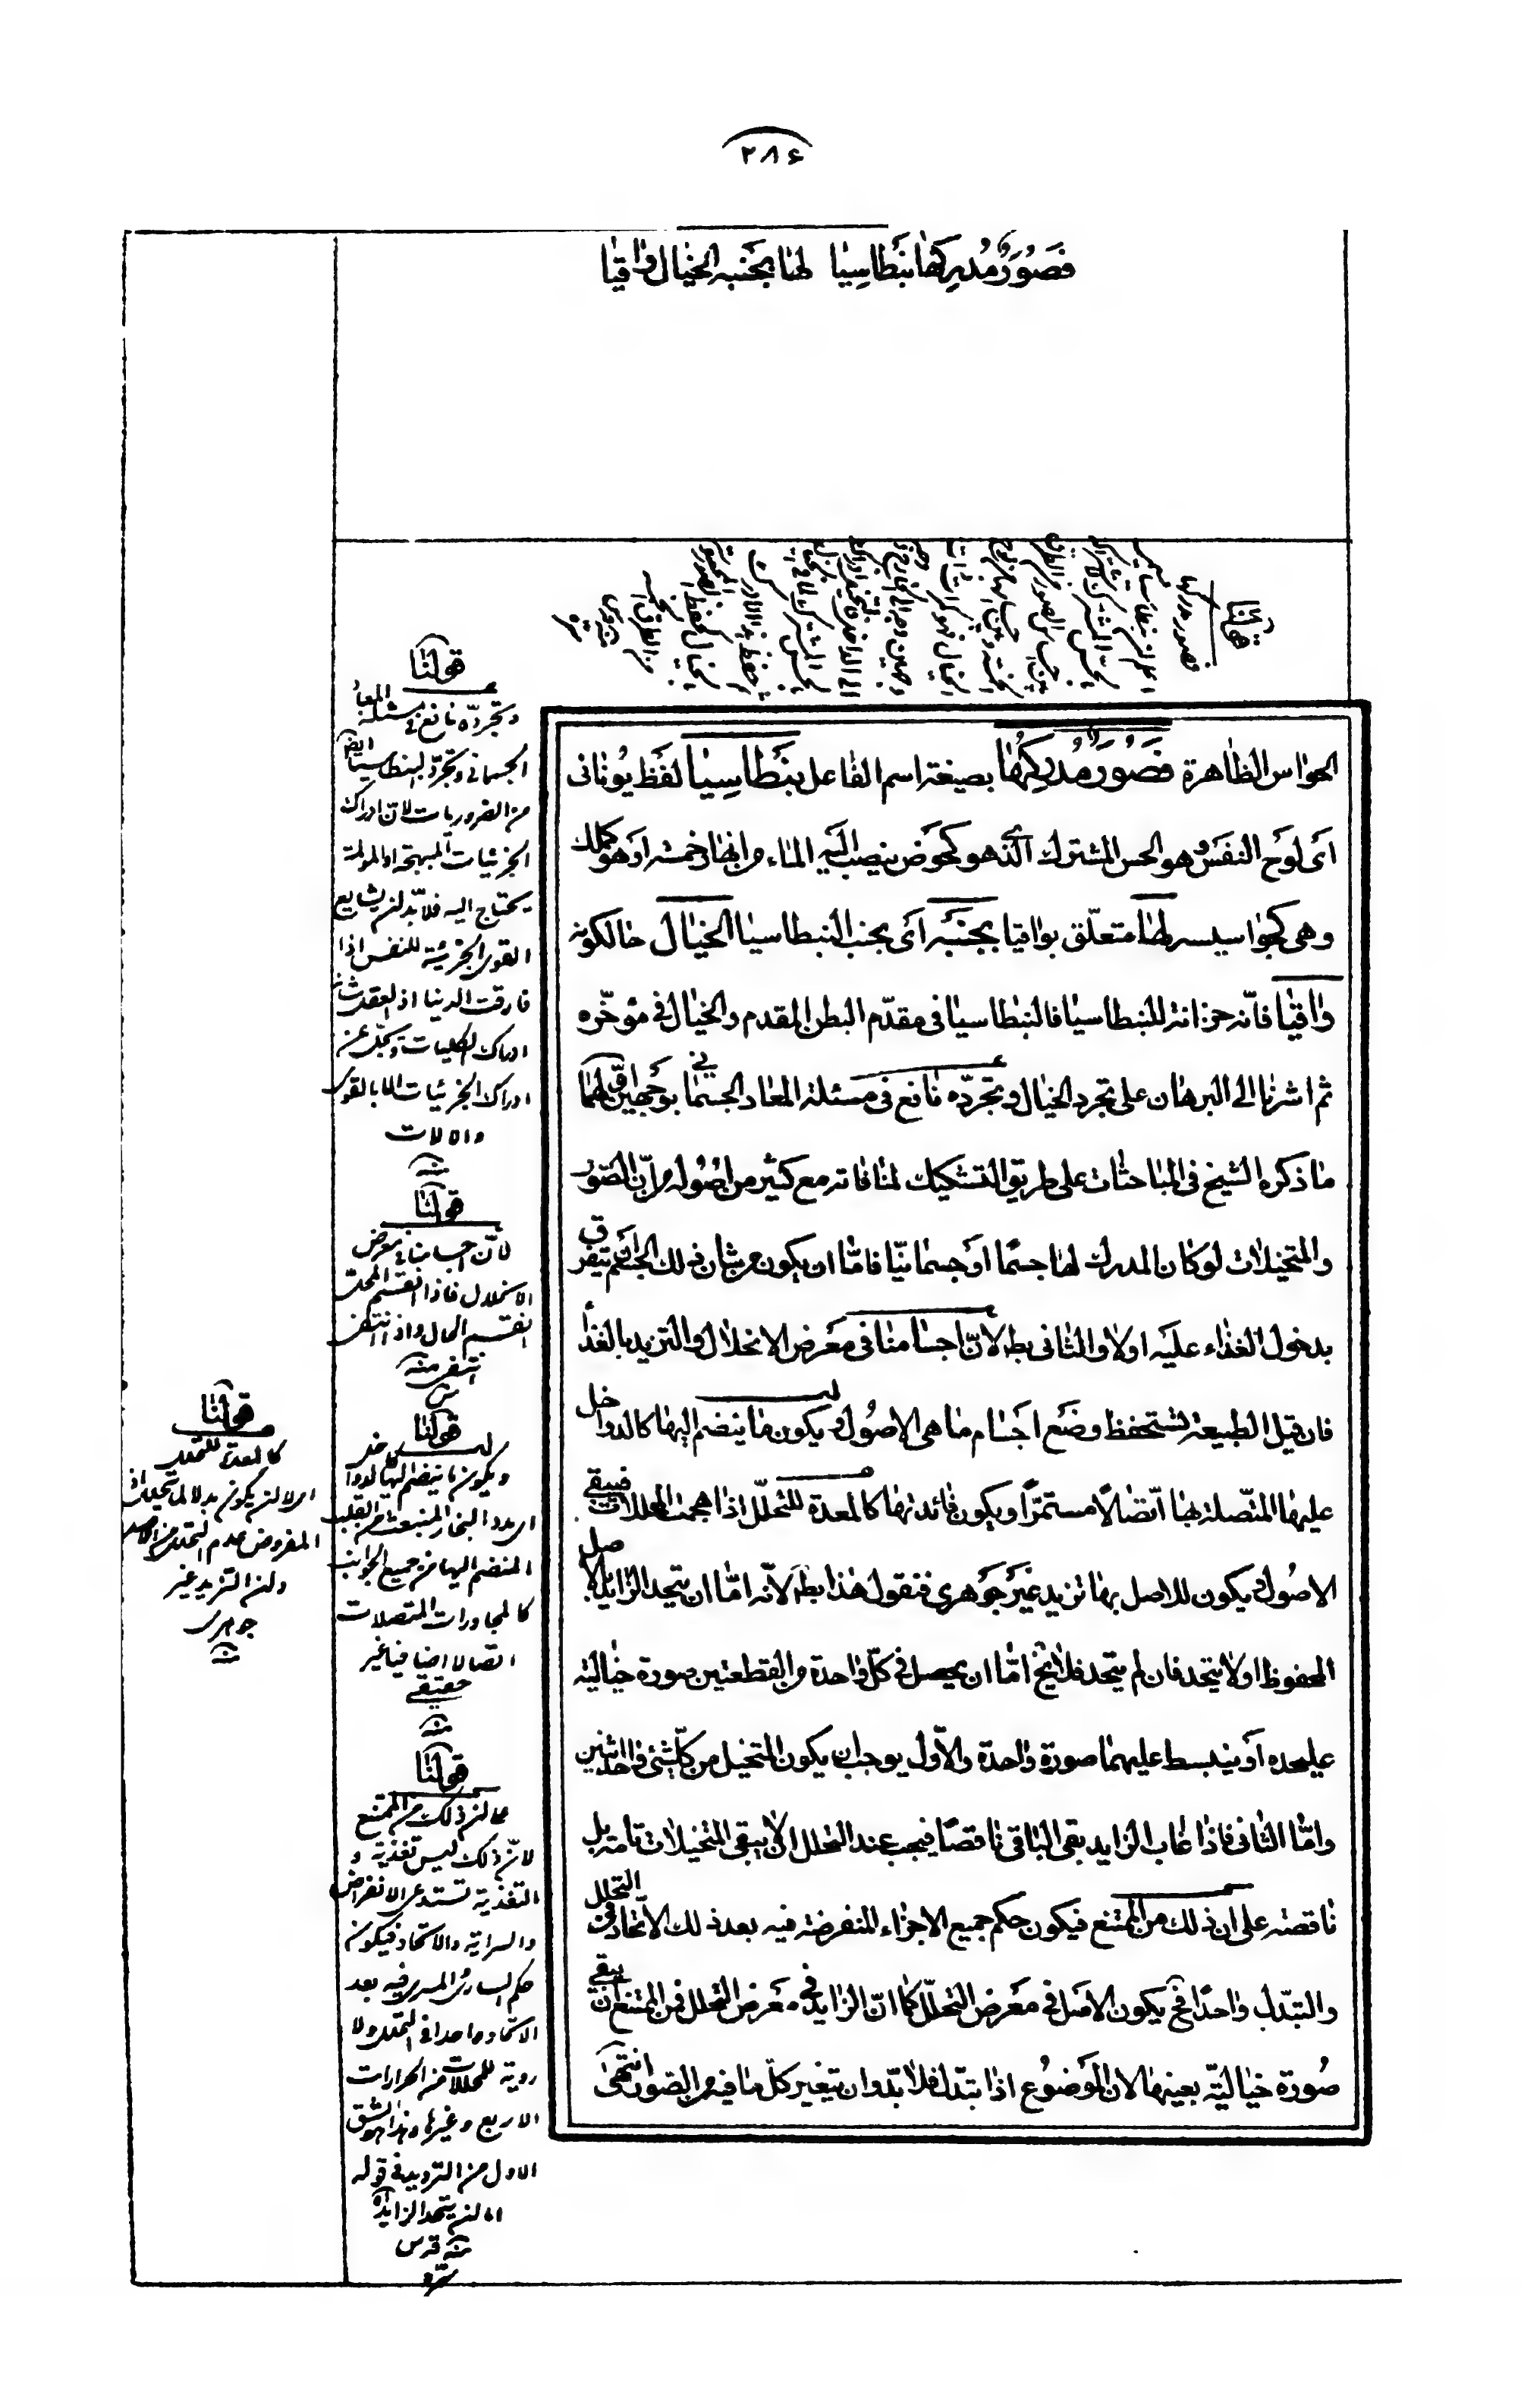 ٢٨۶
فَصُوَرٌ مُدرِكُهَا بَنْطَاسِيَا لها بجَنبه الخيال وٰاقيا
الحواس الظاهرة فَصُوَرٌ مُدرِكُها بصيغة اسم الفاعل بنَطاسِيا لفظ يونانى
اى لوح النفس وهو الحس المشترك الذى هو كحوض ينصب اليه الماء من انهار خمسة او هو كملك
وهى كجواسيسه لها متعلق بواقيا بجَنبه اى بجنب البنطاسيا الخيال حالكونه
واقيا فانه خزانة للبنطاسيا فالبنطاسيا فى مقدّم البطن المقدم والخيال فى مؤخّره
ثم اشرنا الى البرهان على تجرد الخيال وتجرّده نافع فى مسئلة المعاد الجسمانى بوجهين اقواهما
ما ذكره الشيخ فى المباحثات على طريق التشكيك لمنافاته مع كثير من اصوله من انّ الصّور
والمتخيلات لو كان المدرك لها جسمًا او جسمانيّا فامّا ان يكون من شان ذلك الجسم ان يتفرق
بدخول الغذاء عليه اولا والثانى بط لانّ اجسامنا فى معرض الانحلال والتزيد بالغذاء
فان قيل الطبيعة تستحفظ وضع اجسام ما هى الاصول ويكون ما ينضم اليها كالدواخل
عليها المتّصلة بها اتّصالًا مستمرًا ويكون فائدتها كالمعدة للتحلّل اذا هجمت المحللات فيبقى
الاصول ويكون للاصل بها تزيد غير جوهرى فنقول هذا بط لانّه امّا ان يتحد الزايد بالاصل
المحفوظ اولا يتحد فان لم يتحد فلا يخ امّا ان يحصل فى كلّ واحدة من القطعتين صورة خيالية
عليحده او ينبسط عليهما صورة واحدة والاوّل يوجب ان يكون المتخيل من كلّ شئ واحد اثنين
وامّا الثانى فاذا غاب الزايد بقى الباقى ناقصًا فيجب عند التحلل ان لا يبقى المتخيلات تامة بل
ناقصة على ان ذلك من الممتنع فيكون حكم جميع الاجزاء المنفرضة فيه بعد ذلك الاتّحاد فى التحلل
والتبدّل واحدًا فح يكون الاصل فى معرض التحلّل كما انّ الزايد فى معرض التحلل فمن الممتنع ان يبقى
صورة خياليّة بعينها لان الموضوع اذا تبدّل فلا بدّ وان يتغير كلّ ما فيه من الصّور انتهى
قولنا
وتجرّده نافع فى مسئلة المعاد
الجسمانى وتجرّد البنطاسيا ايضا
من الضروريات لانّ ادراك
الجزئيات المبهجة او المولمة
يحتاج اليه فلابدّ ان يشايع
القوى الجزئية للنفس اذا
فارقت الدنيا اذ العقل شانه
ادراك الكليات ويجلّ عن
ادراك الجزئيات الا بالقوى
والالات
منه
قولنا
لانّ اجسامنا فى معرض
الانحلال فاذا انقسم المحل
انقسم الحال واذا انتقض
انتقض منه
قولنا
ويكون ما ينضم اليها كالدواخل
البخار المنبعث من القلب
المنضم اليها من جميع الجوانب
كالمجاورات المتصلات
اتصالا اضافيا غير
حقيقى
منه
قولنا
على ان ذلك من الممتنع
لانّ ذلك ليس تغذية و
التغذية تستدعى الانفراض
والسراية والاتحاد فيكون
حكم السارى والمسرى فيه بعد
الاتحاد واحدا فى التحلل ولا
روية للمحللات من الحرارات
الاربع وغيرها وهذا هو الشق
الاول من الترديد فى قوله
اما ان يتحد الزايد اه
منه قدس
سرّه
قولنا
كالمعدة للتحلل
اى لا ان يكون بدلا لما يتحلل اذ
المفروض عدم التحلل من الاصل
وان التزيد غير
جوهرى
منه